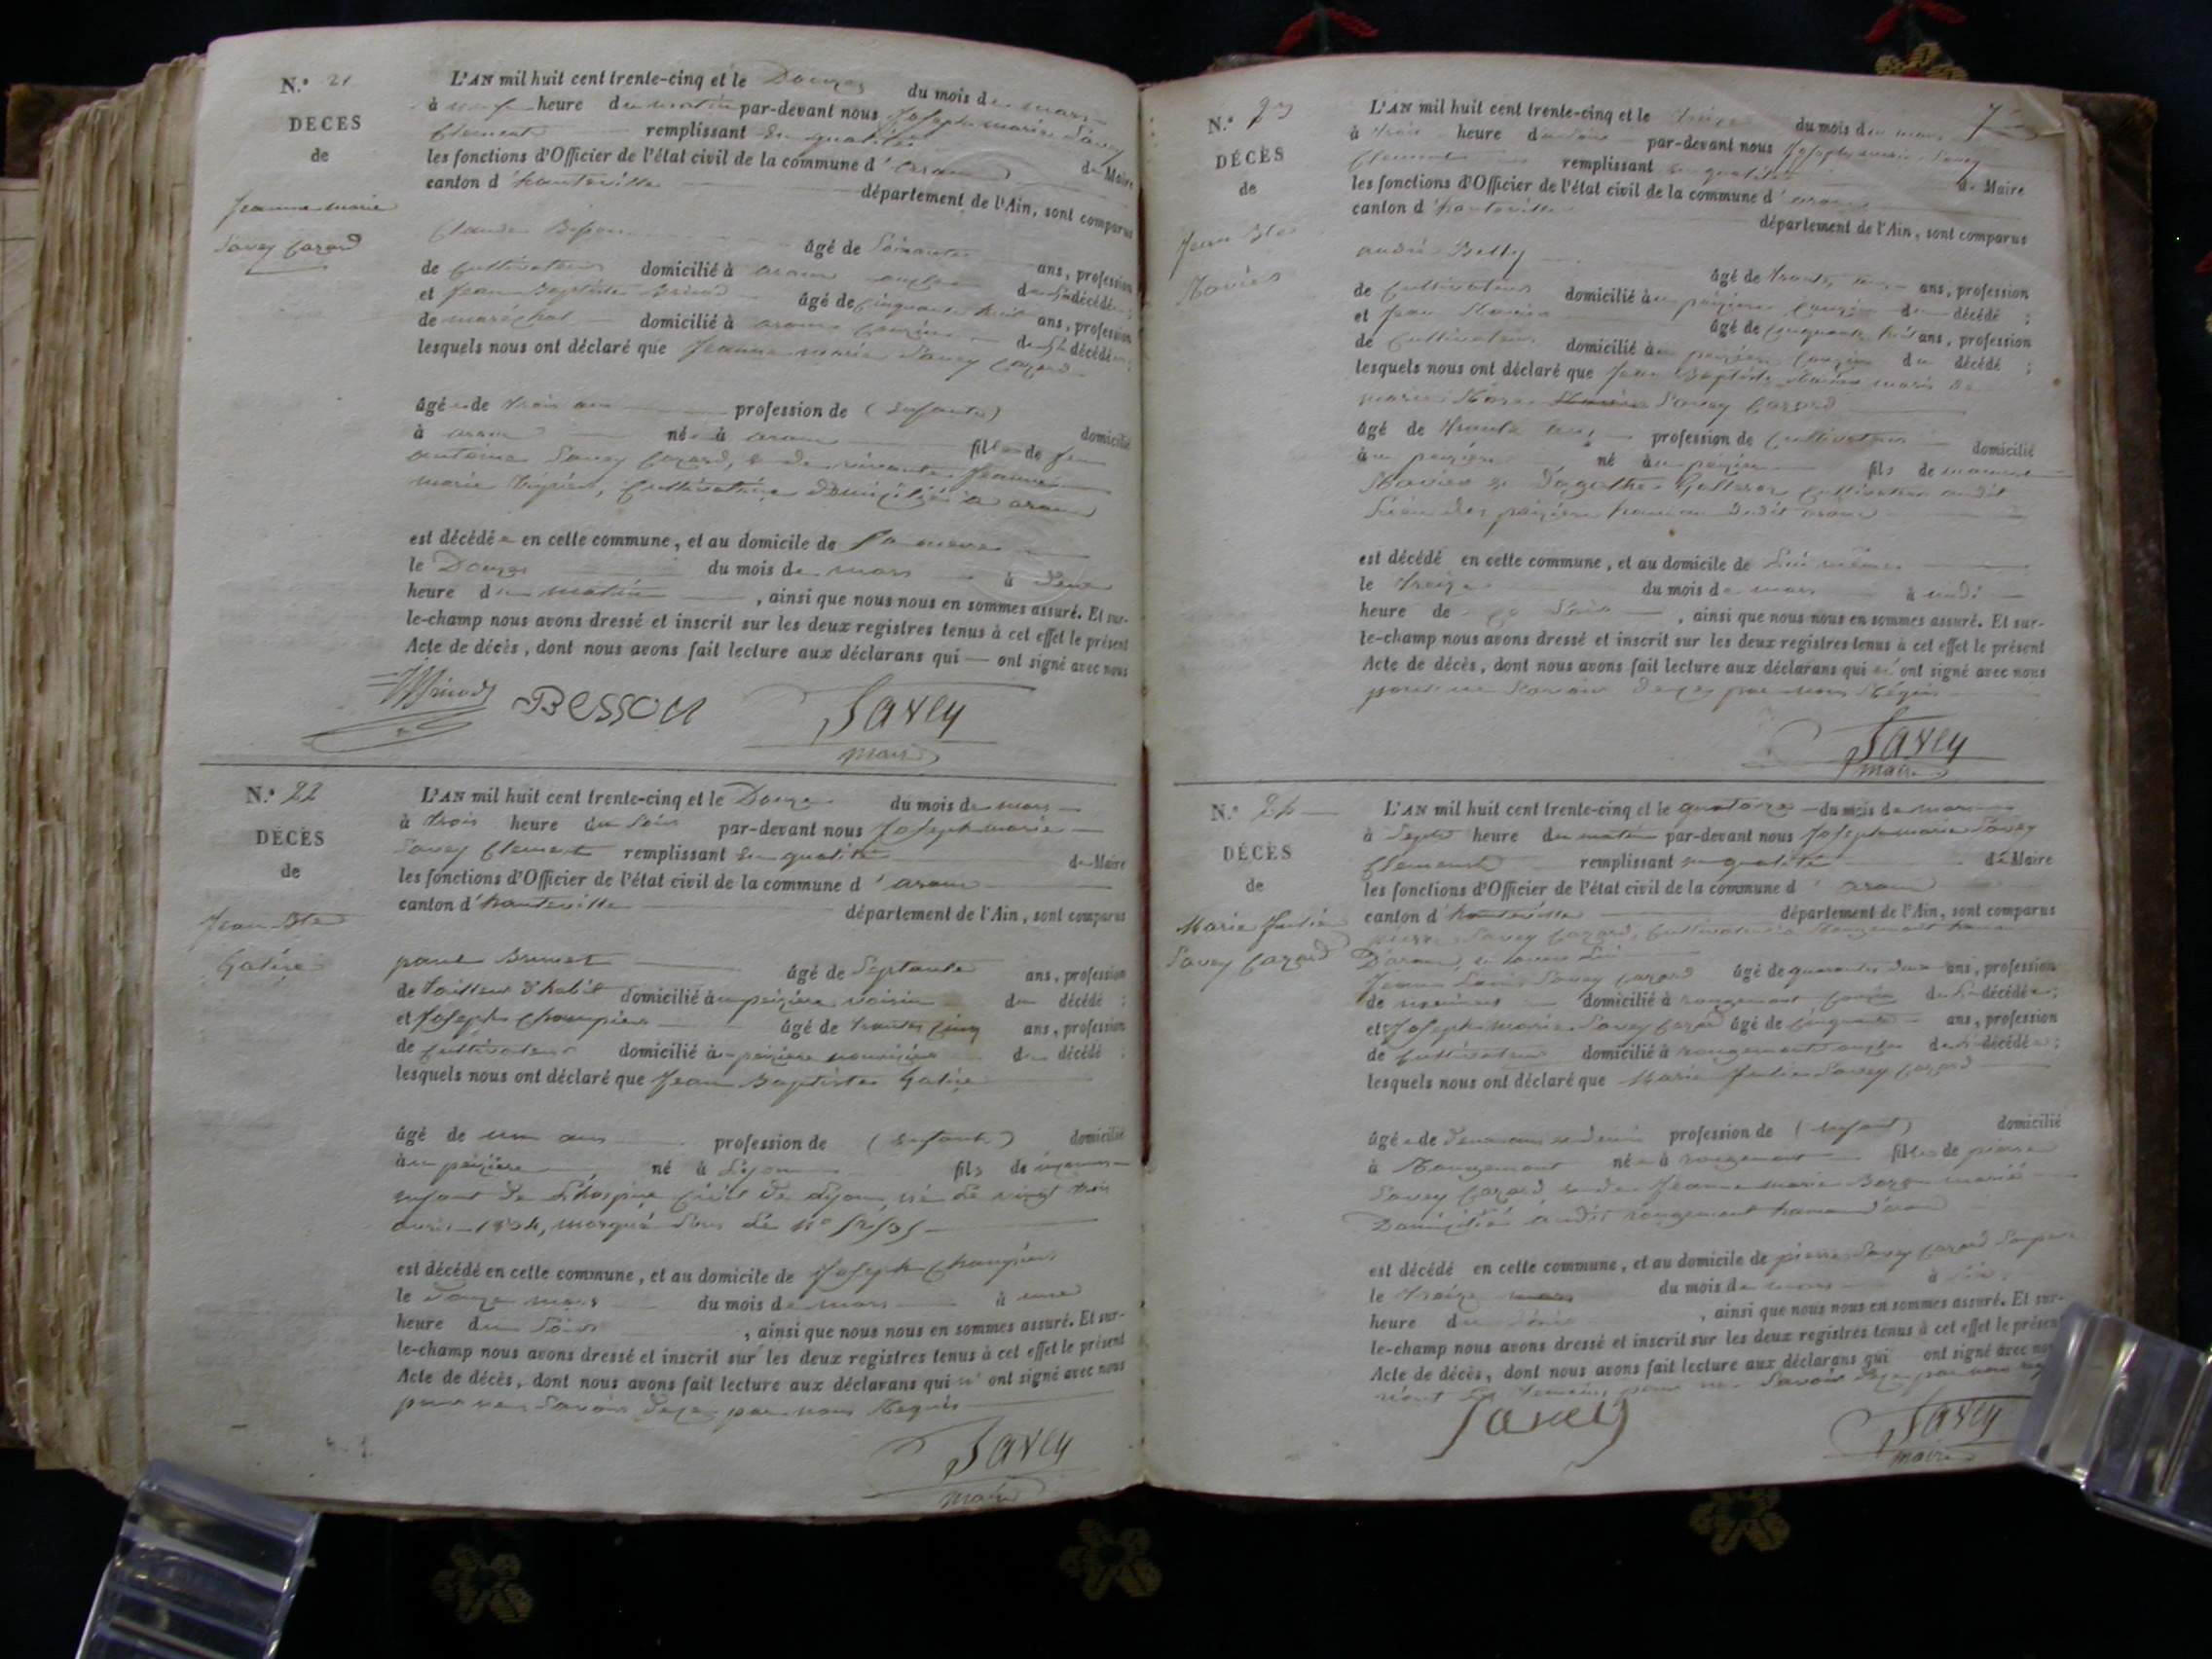 N.° 21
DECES
de
Jeanne marie
Savey Cazard
L'AN mil huit cent trente-cinq et le Douze du mois de mars
à neuf heure du matin par-devant nous Joseph marie Savey
Clement remplissant en qualité de Maire
les fonctions d'Officier de l'état civil de la commune d'aranc
canton d'hauteville département de l'Ain, sont comparus
Claude Besson âgé de Soixante ans, profession
de Cultivateur domicilié à aranc oncle de la décédée ;
et Jean Baptiste Brinod âgé de Cinquante huit ans, profession
de maréchal domicilié à aranc Couzin de la décédée ;
lesquels nous ont déclaré que Jeanne marie Savey Cazard
âgée de trois ans profession de (Enfante) domicilié
à aranc née à aranc fille de feu
antoine Savey Cazard, & de vivante Jeanne
marie Cultivatrice Domiciliée à aranc
est décédée en cette commune, et au domicile de Sa mere
le Douze du mois de mars à Deux
heure du matin , ainsi que nous nous en sommes assuré. Et sur-
le-champ nous avons dressé et inscrit sur les deux registres tenus à cet effet le présent
Acte de décès, dont nous avons fait lecture aux déclarans qui — ont signé avec nous
BESSON Savey
maire
N.° 22
DÉCÈS
de
Jean Bte
Galize
L'AN mil huit cent trente-cinq et le Douze du mois de mars
à trois heure du Soir par-devant nous Joseph marie
Savey Clement remplissant en qualité de Maire
les fonctions d'Officier de l'état civil de la commune d'aranc
canton d'hauteville département de l'Ain, sont comparus
paul Brunet âgé de Septante ans, profession
de tailleur d'habit domicilié à voisin du décédé ;
et Joseph Champier âgé de trente cinq ans, profession
de Cultivateur domicilié à du décédé ;
lesquels nous ont déclaré que Jean Baptiste Galize
âgé de un an profession de (Enfant) domicilié
né à Lyon fils de
enfant de L'hospice Civil de Lyon, né le vingt trois
avril 1834, marqué Sous Le N°
est décédé en cette commune, et au domicile de Joseph Champier
le Douze mars du mois de mars à une
heure du Soir , ainsi que nous nous en sommes assuré. Et sur-
le-champ nous avons dressé et inscrit sur les deux registres tenus à cet effet le présent
Acte de décès, dont nous avons fait lecture aux déclarans qui n'ont signé avec nous
pour ne Savoir par nous Requis
Savey
maire
N.° 23
DÉCÈS
de
Jean Bte
L'AN mil huit cent trente-cinq et le treize du mois de mars
à trois heure du soir par-devant nous Joseph marie Savey
Clement remplissant en qualité de Maire
les fonctions d'Officier de l'état civil de la commune d'aranc
canton d'hauteville département de l'Ain, sont comparus
andré Belly âgé de trente ans, profession
de Cultivateur domicilié à Couzin du décédé ;
et Jean âgé de Cinquante ans, profession
de Cultivateur domicilié à Couzin du décédé ;
lesquels nous ont déclaré que Jean Baptiste mari de
marie Savey Cazard
âgé de trente profession de Cultivateur domicilié
à né à fils de
Cultivateur audit
hameau dudit aranc
est décédé en cette commune, et au domicile de Lui même
le treize du mois de mars à midi
heure de , ainsi que nous nous en sommes assuré. Et sur-
le-champ nous avons dressé et inscrit sur les deux registres tenus à cet effet le présent
Acte de décès, dont nous avons fait lecture aux déclarans qui n'ont signé avec nous
pour ne Savoir par nous Requis
Savey
maire
N.° 24
DÉCÈS
de
Marie Julie
Savey Cazard
L'AN mil huit cent trente-cinq et le quatorze du mois de mars
à Sept heure du matin par-devant nous Joseph marie Savey
Clement remplissant en qualité de Maire
les fonctions d'Officier de l'état civil de la commune d'aranc
canton d'hauteville département de l'Ain, sont comparus
pierre Savey Cazard, Cultivateur à Rougemont hameau
D'aranc,
Jean Louis Savey Cazard âgé de quarante deux ans, profession
de domicilié à rougemont Couzin de la décédée ;
et Joseph marie Savey Cazard âgé de Cinquante ans, profession
de Cultivateur domicilié à rougemont oncle de la décédée ;
lesquels nous ont déclaré que Marie Julie Savey Cazard
âgée de Deux ans et demi profession de (Enfant) domicilié
à Rougemont née à rougemont fille de pierre
Savey Cazard & de Jeanne marie mariés
Domiciliés audit rougemont hameau d'aranc
est décédé en cette commune, et au domicile de pierre Savey Cazard Son père
le treize mars du mois de mars à Six
heure du Soir , ainsi que nous nous en sommes assuré. Et sur-
le-champ nous avons dressé et inscrit sur les deux registres tenus à cet effet le présent
Acte de décès, dont nous avons fait lecture aux déclarans qui ont signé avec nous
témoins pour ne Savoir par nous
Savey Savey
maire